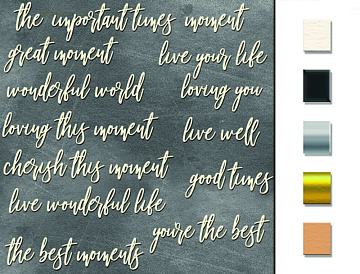 the important times moment
great moment
live your life
wonderful world
loving you
loving this moment
live well
cherish this moment
good times
live wonderful life
you're the best
the best moments